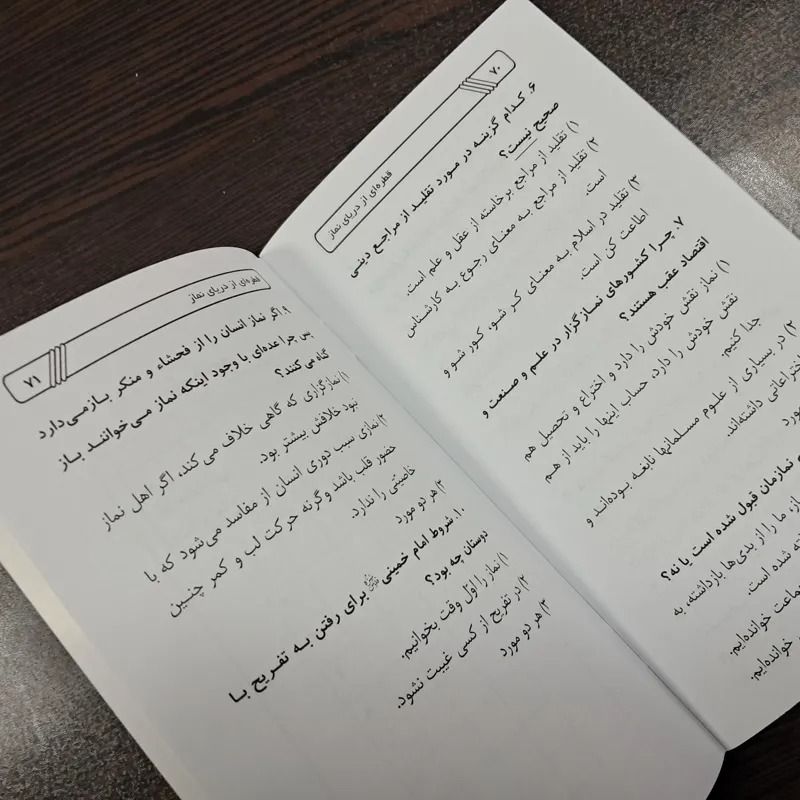 ۷۰
قطره‌ای از دریای نماز
۶. کدام گزینه در مورد تقلید از مراجع دینی
صحیح نیست؟
۱) تقلید از مراجع برخاسته از عقل و علم است.
۲) تقلید از مراجع به معنای رجوع به کارشناس
است.
۳) تقلید در اسلام به معنای کر شو، کور شو و
اطاعت کن است.
۷. چرا کشورهای نمازگزار در علم و صنعت و
اقتصاد عقب هستند؟
۱) نماز نقش خودش را دارد و اختراع و تحصیل هم
نقش خودش را دارد، حساب اینها را باید از هم
جدا کنیم.
۲) در بسیاری از علوم مسلمانها نابغه بوده‌اند و
اختراعاتی داشته‌اند.
نمازمان قبول شده است یا نه؟
ما را از بدی‌ها بازداشته، به
شده است.
خوانده‌ایم.
خوانده‌ایم.
قطره‌ای از دریای نماز
۷۱
۹. اگر نماز انسان را از فحشاء و منکر بازمی‌دارد
پس چرا عده‌ای با وجود اینکه نماز می‌خوانند باز
گناه می‌کنند؟
۱) نمازگزاری که گاهی خلاف می‌کند، اگر اهل نماز
نبود خلافش بیشتر بود.
۲) نمازی سبب دوری انسان از مفاسد می‌شود که با
حضور قلب باشد وگرنه حرکت لب و کمر چنین
خاصیتی را ندارد.
۳) هر دو مورد
۱۰. شروط امام خمینی برای رفتن به تفریح با
دوستان چه بود؟
۱) نماز را اوّل وقت بخوانیم.
۲) در تفریح از کسی غیبت نشود.
۳) هر دو مورد